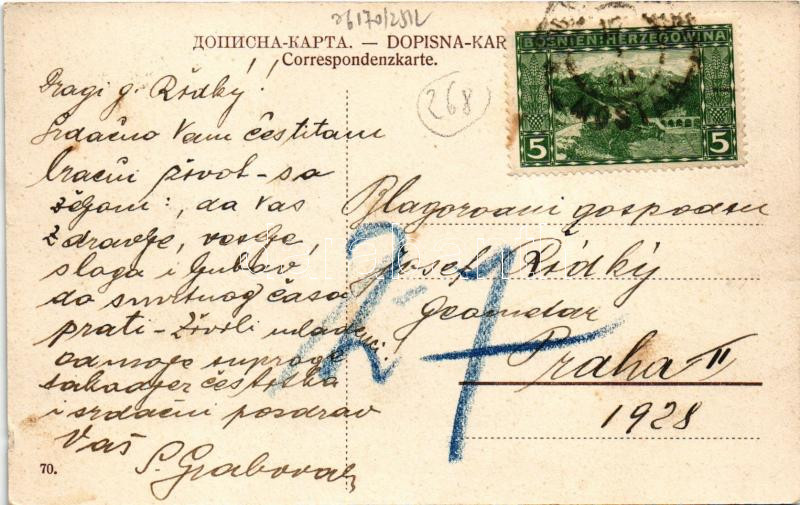 26170/281L
ДОПИСНА-КАРТА. — DOPISNA-KAR
Correspondenzkarte.
268
BOSNIEN-HERZEGOWINA
5 5
Dragi g. Řídký!
Srdačno Vam čestitam
bračni život - sa
željom:, da Vas
zdravlje, veselje,
sloga i ljubav
do smrtnog časa
prati - Živili mladenci!
od moje supruge
takodjer čestitka
i srdačni pozdrav
Vaš
S. Grabovac
Blagorodni gospodin
Josef Řídký
Geometar
Praha II
1928
27
70.